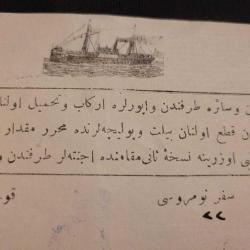 ن وسائره طرفندن واپورلره اركاب وتحميل اولنا
ن قطع اولنان بيلت وپوليچه‌لرنده محرر مقدار
ى اوزرينه نسخهٔ ثانى مقامنده اجنته‌لر طرفندن و
سفر نومروسى
قو
٢٢